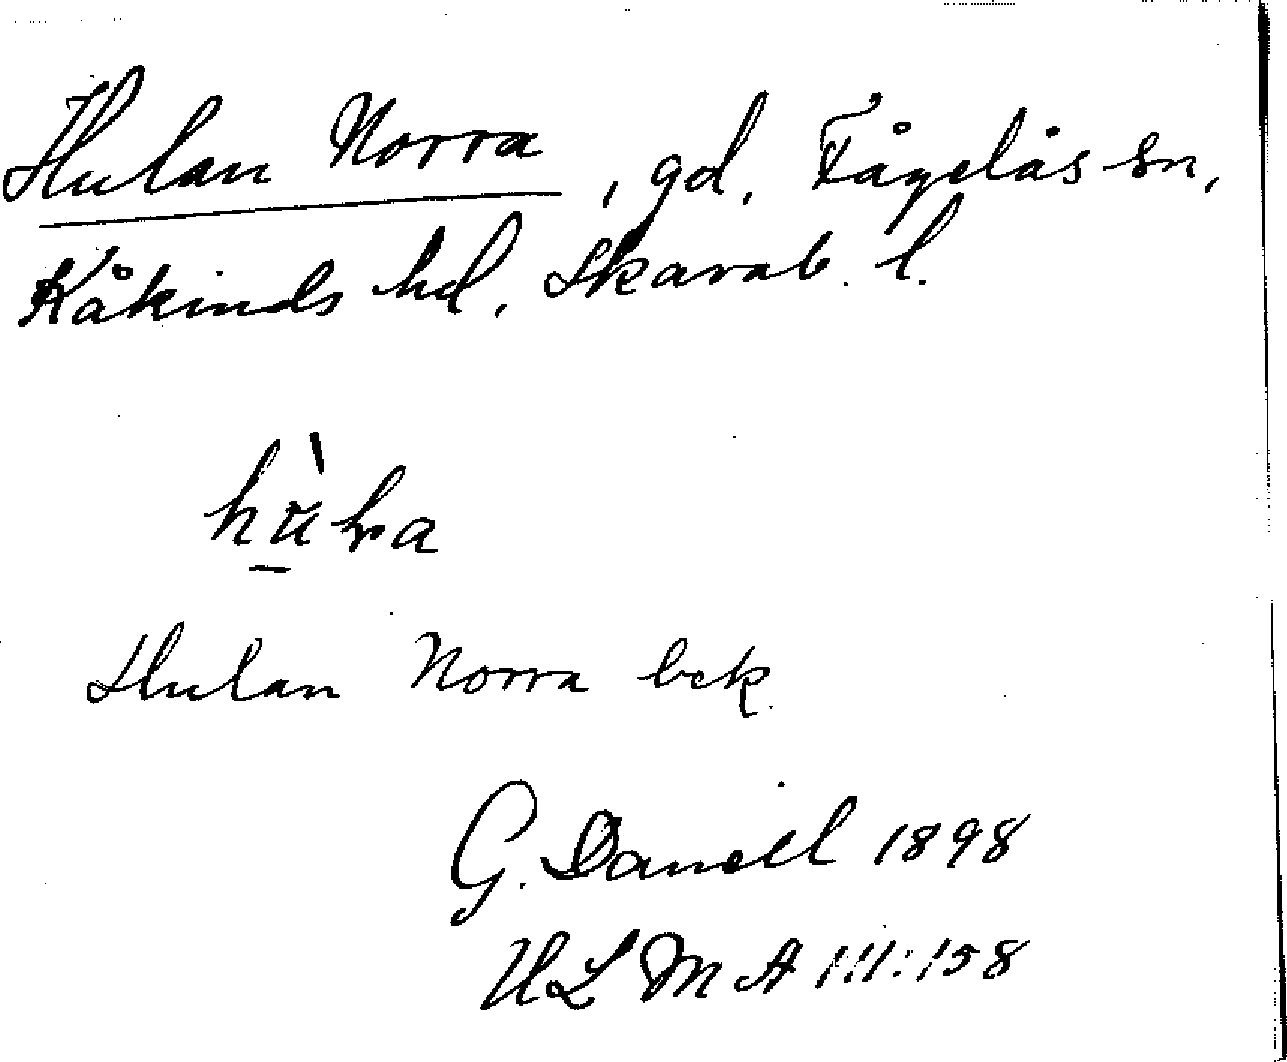 Hulan Norra, gd, Fågelås sn,
Kåkinds hd, Skarab. l.
Hulan Norra bek.
G. Danell 1898
ULMA 111:158